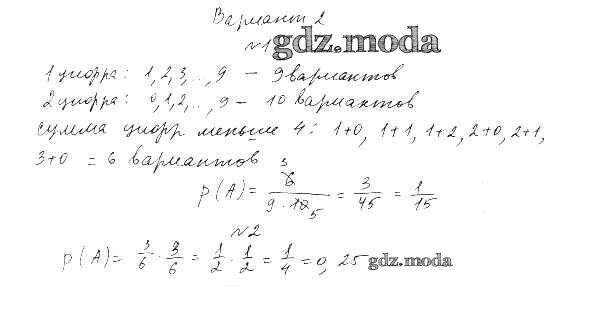 Вариант 2
№1 gdz.moda
1 цифра: 1, 2, 3, .., 9 – 9 вариантов
2 цифра: 0, 1, 2, .., 9 – 10 вариантов
сумма цифр меньше 4: 1+0, 1+1, 1+2, 2+0, 2+1,
3+0 = 6 вариантов
p(A) = 6 3 / 9 · 10 5 = 3/45 = 1/15
№2
p(A) = 3/6 · 3/6 = 1/2 · 1/2 = 1/4 = 0,25 gdz.moda